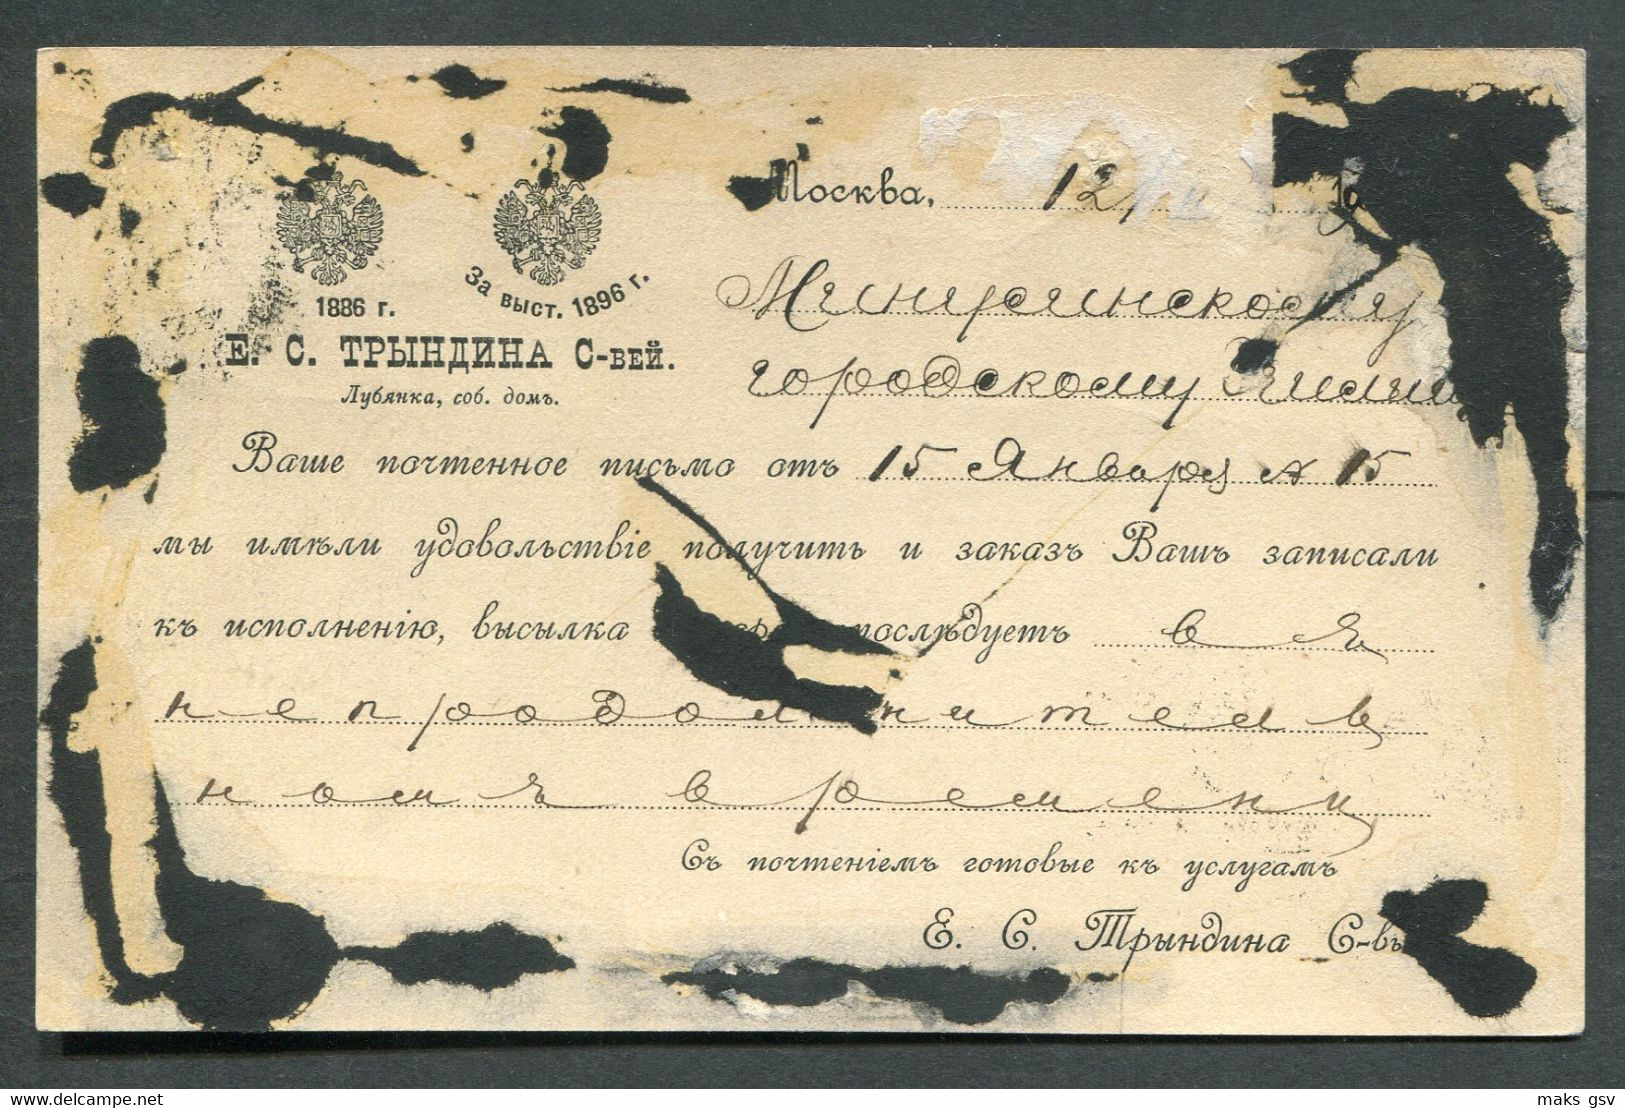 Москва, 12,
1886 г.
За выст. 1896 г.
Е. С. ТРЫНДИНА С-вей.
Лубянка, соб. домъ.
городскому
Ваше почтенное письмо отъ 15 Января 15
мы имѣли удовольствіе получить и заказъ Вашъ записали
къ исполненію, высылка послѣдуетъ въ
непродолжитель
номъ времени
Съ почтеніемъ готовые къ услугамъ
Е. С. Трындина С-вья
delcampe.net
maks gsv